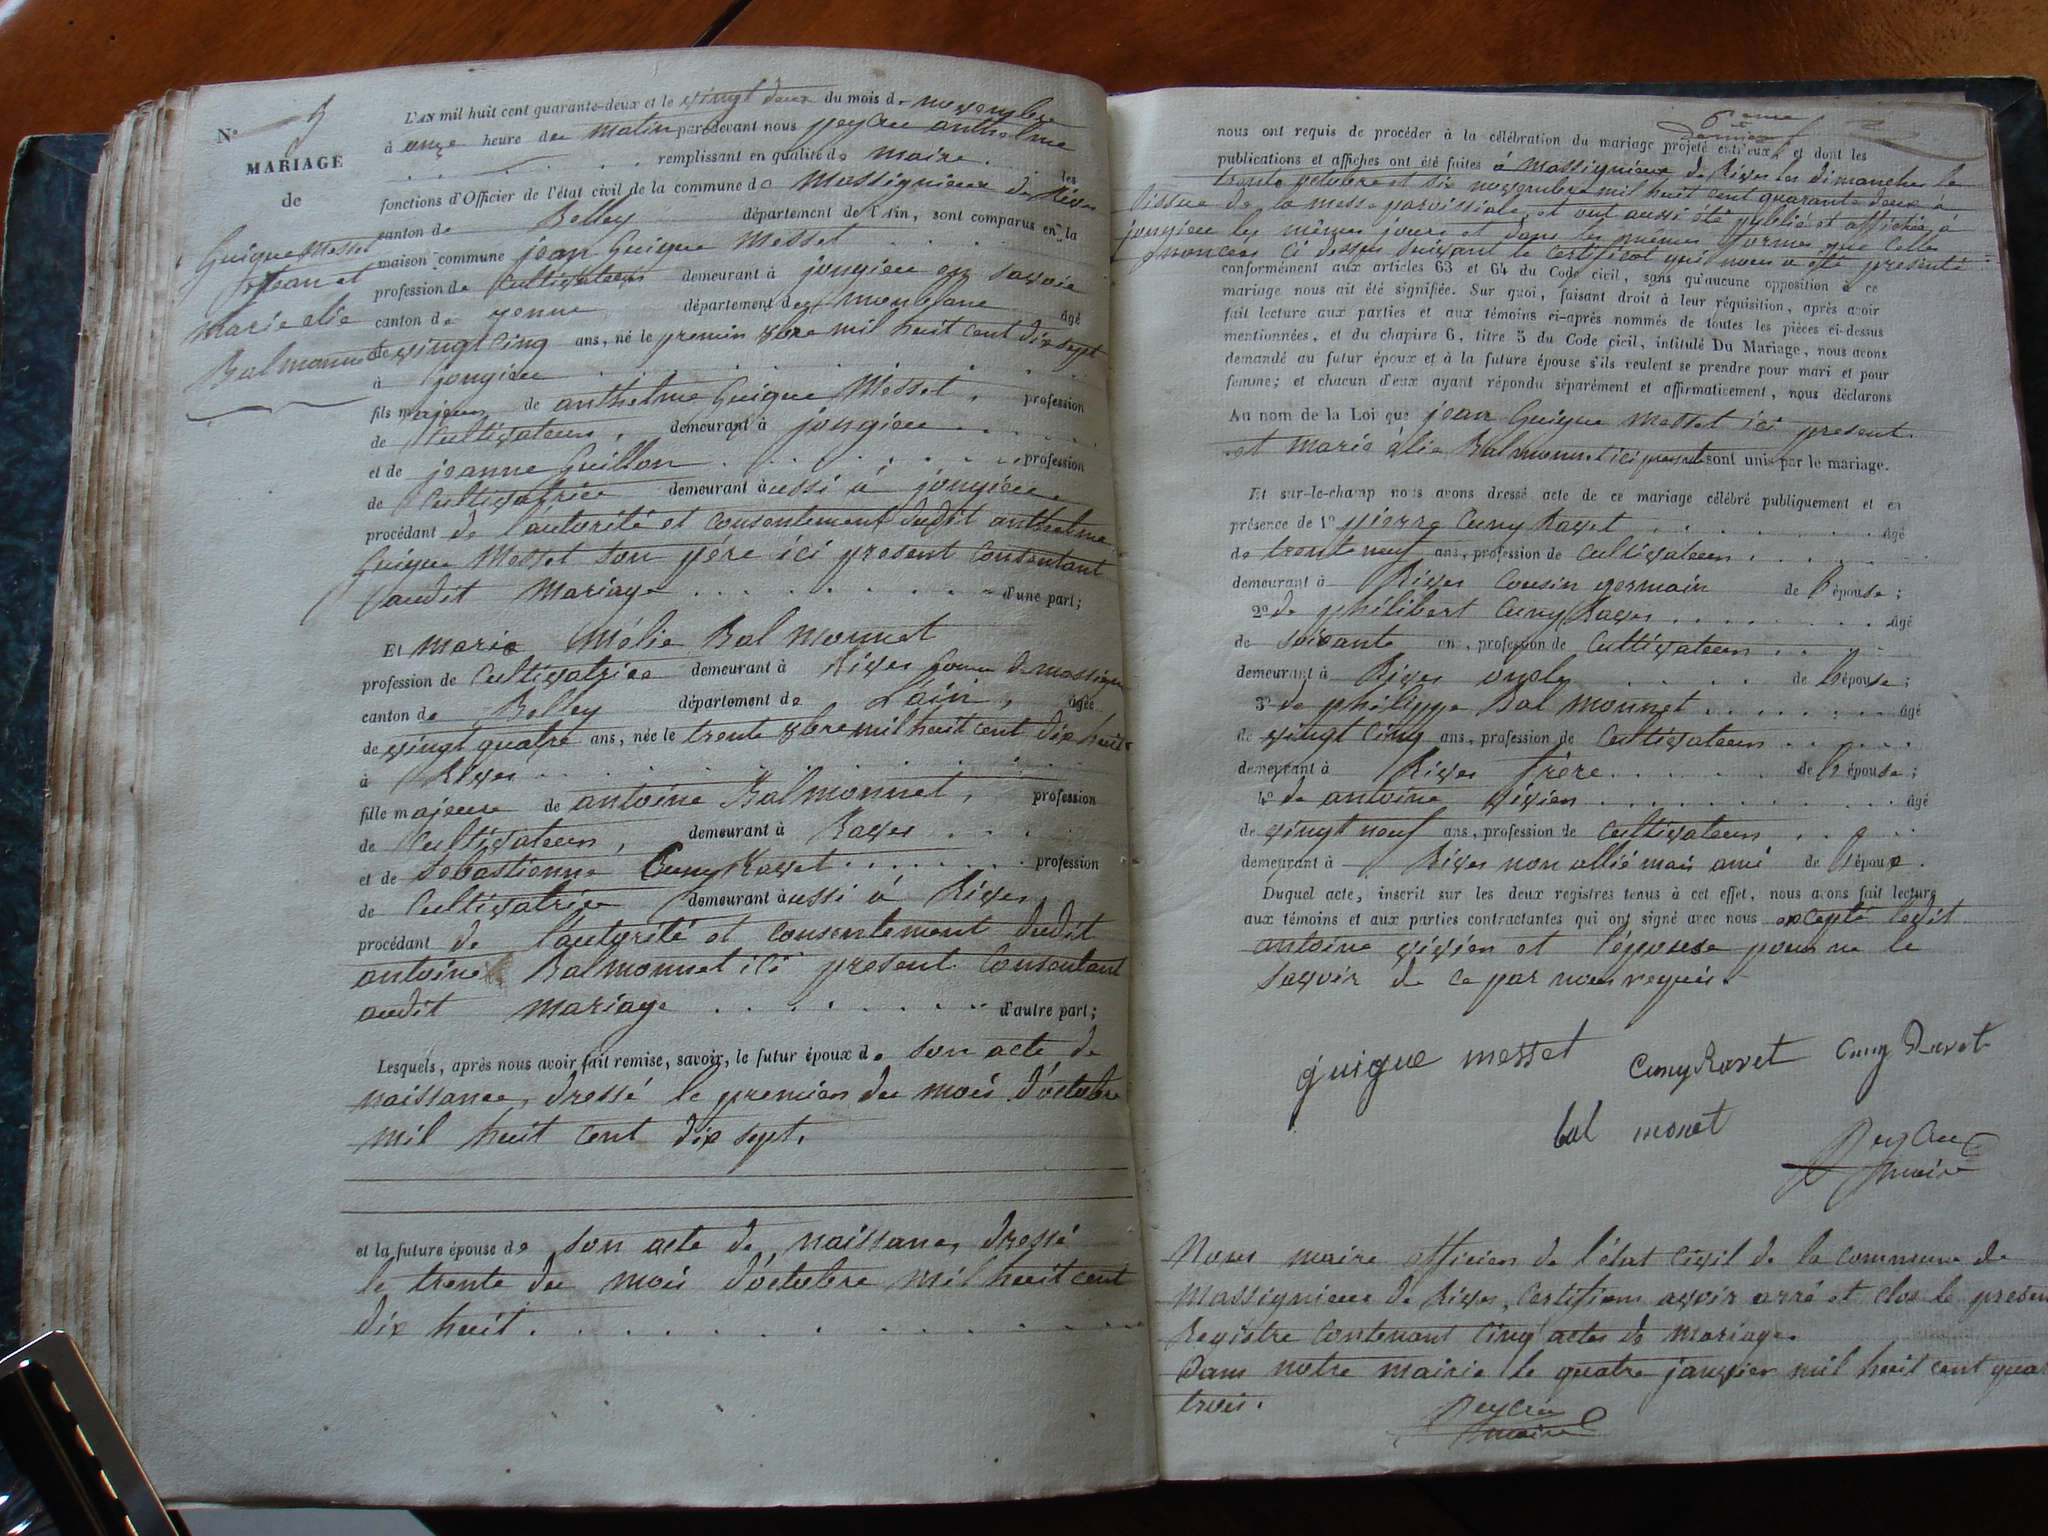 N° 5
MARIAGE
de
Guigue Messet
Jean et
Marie elie
Bal monnet
L'AN mil huit cent quarante-deux et le vingt deux du mois de novembre
à onze heure du matin pardevant nous peycru anthelme
remplissant en qualité de maire les
fonctions d'Officier de l'état civil de la commune de Massignieux de Rives
canton de Belley département de l'Ain, sont comparus en la
maison commune jean Guigue Messet
profession de Cultivateur demeurant à jongieu en savoie
canton de yenne département de âgé
de vingt cinq ans, né le premier 8bre mil huit cent dix sept
à jongieu
fils majeur de anthelme Guigue Messet, profession
de Cultivateur, demeurant à jongieu
et de jeanne Guillon profession
de Cultivatrice demeurant aussi à jongieu
procédant de l'autorité et consentement dudit anthelme
Guigue Messet son père ici present Consentant
audit Mariage d'une part;
Et marie Mélie Bal monnet
profession de Cultivatrice demeurant à Rives Comm de massigni
canton de Belley département de Lain, âgée
de vingt quatre ans, née le trente 8bre mil huit cent dix huit
à Rives
fille majeure de antoine Balmonnet, profession
de Cultivateur, demeurant à Raves
et de Sebastienne Cuny Ravet profession
de Cultivatrice demeurant aussi à Rives
procédant de l'autorité et consentement dudit
antoine Balmonnet ici present Consentant
audit mariage d'autre part;
Lesquels, après nous avoir fait remise, savoir, le futur époux de son acte de
naissance, dressé le premier du mois d'octobre
mil huit cent dix sept.
et la future épouse de son acte de naissance, dressé
le trente du mois d'octobre mil huit cent
dix huit
5eme
et
dernier
nous ont requis de procéder à la célébration du mariage projeté entr'eux, et dont les
publications et affiches ont été faites à Massignieux de Rives les dimanches le
trente octobre et six novembre mil huit cent quarante deux à
lissue de la messe parvissiale et ont aussi été publié et affichée à
jongieu les mêmes jours et dans les mêmes formes que celles
énoncées ci dessus suivant le certificat qui nous a été presenté
conformément aux articles 63 et 64 du Code civil, sans qu'aucune opposition à ce
mariage nous ait été signifiée. Sur quoi, faisant droit à leur réquisition, après avoir
fait lecture aux parties et aux témoins ci-après nommés de toutes les pièces ci-dessus
mentionnées, et du chapitre 6, titre 5 du Code civil, intitulé Du Mariage, nous avons
demandé au futur époux et à la future épouse s'ils veulent se prendre pour mari et pour
femme; et chacun d'eux ayant répondu séparément et affirmativement, nous déclarons
Au nom de la Loi que jean Guigue Messet ici present
et marie élie Bal monnet ici present sont unis par le mariage.
Et sur-le-champ nous avons dressé acte de ce mariage célébré publiquement et en
présence de 1° pierre Cuny Ravet âgé
de trente neuf ans, profession de Cultivateur
demeurant à Rives Cousin germain de l'épouse;
2° de philibert Cuny Raves âgé
de soixante an, profession de Cultivateur
demeurant à Rives oncle de l'épouse;
3° de philippe Bal monnet âgé
de vingt cinq ans, profession de Cultivateur
demeurant à Rives frère de l'épouse;
4° de antoine vivien âgé
de vingt neuf ans, profession de Cultivateur
demeurant à Rives non allié mais ami de l'époux.
Duquel acte, inscrit sur les deux registres tenus à cet effet, nous avons fait lecture
aux témoins et aux parties contractantes qui ont signé avec nous excepté ledit
antoine vivien et l'épouse pour ne le
savoir de ce par nous requis.
guigue messet Cuny Ravet Cuny Ravet
bal monet
Peycru
maire
Nous maire officier de l'état Civil de la commune de
Massignieux de Rives, Certifions avoir arré et clos le presen
Registre Contenant Cinq actes de mariage.
Dans notre mairie le quatre janvier mil huit cent quar
trois.
Peycru
maire